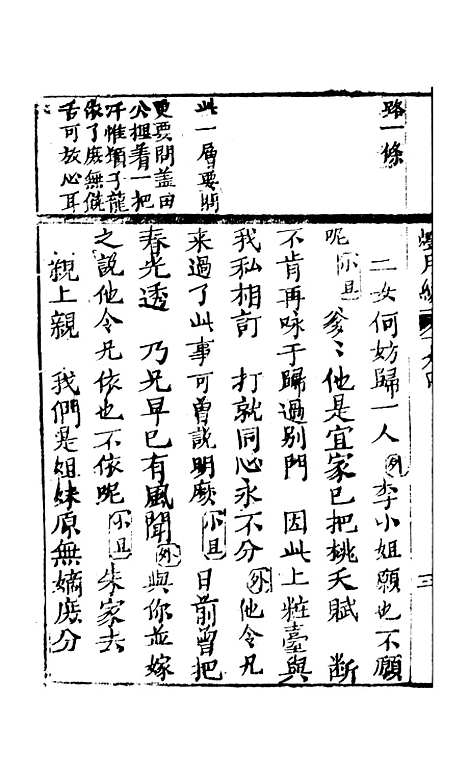 路一條
此一層要開
更要問蓋由
公担看一把
汗惟獨子龍
依了庶無饒
舌可放心耳
二女何妨歸一人外李小姐願也不願
呢小旦爹〻他是宜家已把桃夭賦 断
不肯再咏于歸過別門 因此上粧臺與
我私相訂 打就同心永不分外他令兄
來過了此事可曾說明麽小旦日前曾把
春光透 乃兄早已有風聞外與你並嫁
之説他令兄依也不依呢小旦朱家去
親上親 我們是姐妹原無嫡庶分
三